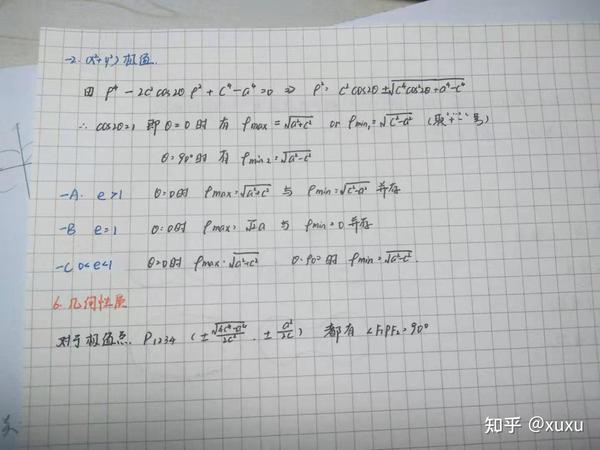 -2. (x²+y²) 极值.
由 ρ⁴ - 2c²cos2θ ρ² + c⁴-a⁴=0 ⇒ ρ² = c²cos2θ ± √(c⁴cos²2θ+a⁴-c⁴)
∴ cos2θ=1 即 θ=0 时 有 ρmax = √(a²+c²) or ρmin₁ = √(c²-a²) (取"+""-"号)
θ=90° 时 有 ρmin2 = √(a²-c²)
-A. e>1 θ=0时 ρmax=√(a²+c²) 与 ρmin=√(c²-a²) 并存
-B e=1 θ=0时 ρmax= √2a 与 ρmin=0 并存
-C 0<e<1 θ=0时 ρmax=√(a²+c²) θ=90°时 ρmin=√(a²-c²).
6. 几何性质
对于极值点 P₁₂₃₄ (± √(4c⁴-a⁴)/2c , ± a²/2c) 都有 ∠F₁PF₂=90°
知乎 @xuxu